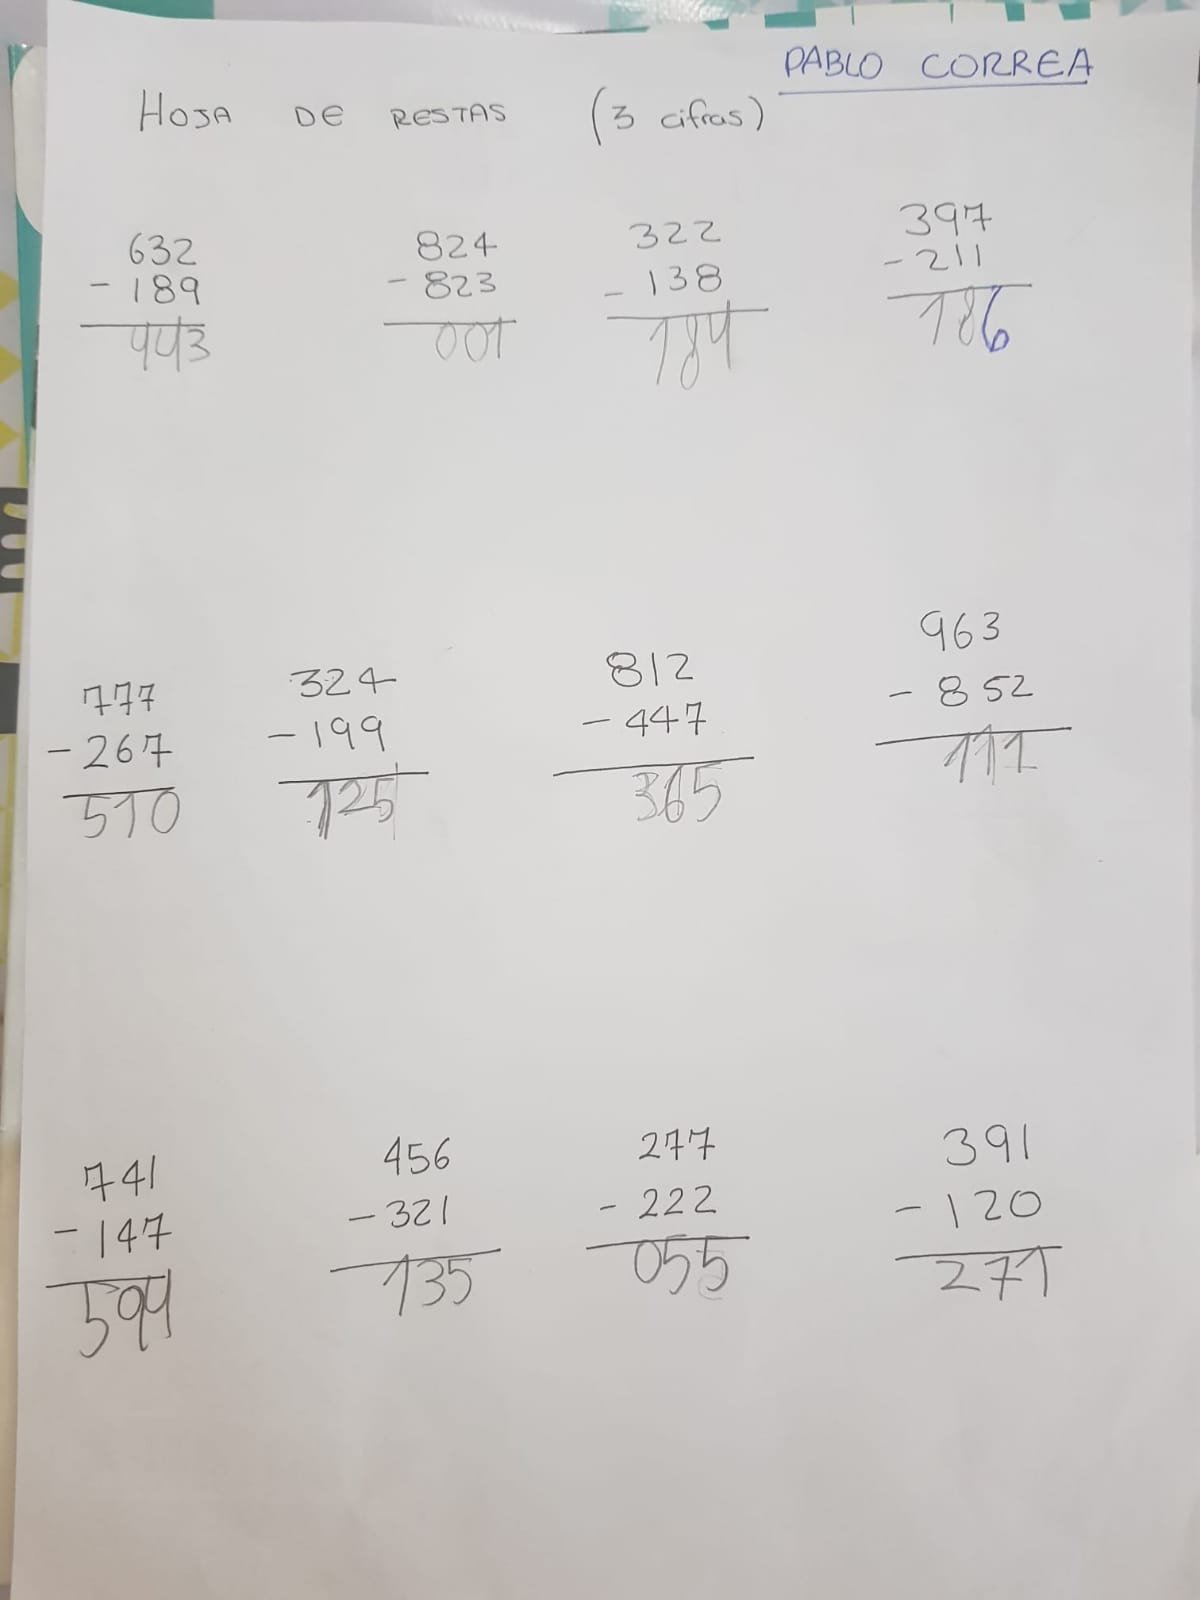 PABLO CORREA
HOJA DE RESTAS (3 cifras)
632
- 189
443
824
- 823
001
322
- 138
184
397
- 211
186
777
- 267
510
324
- 199
125
812
- 447
365
963
- 852
111
741
- 147
594
456
- 321
135
277
- 222
055
391
- 120
271